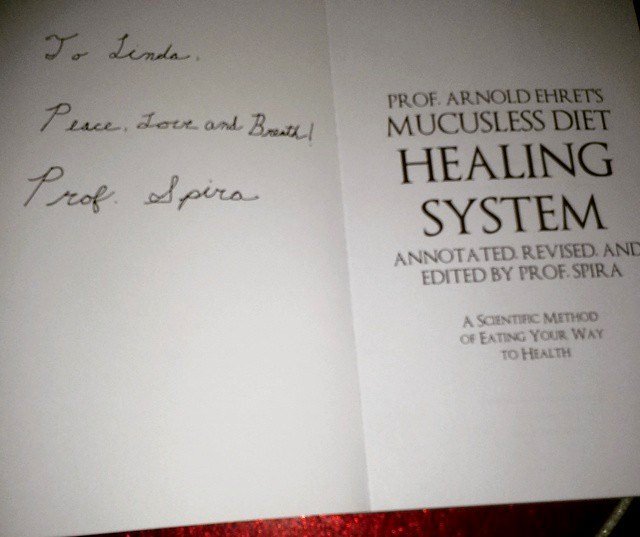 To Linda,
Peace, Love and Breath!
Prof. Spira
PROF. ARNOLD EHRET'S
MUCUSLESS DIET
HEALING
SYSTEM
ANNOTATED, REVISED, AND
EDITED BY PROF. SPIRA
A SCIENTIFIC METHOD
OF EATING YOUR WAY
TO HEALTH